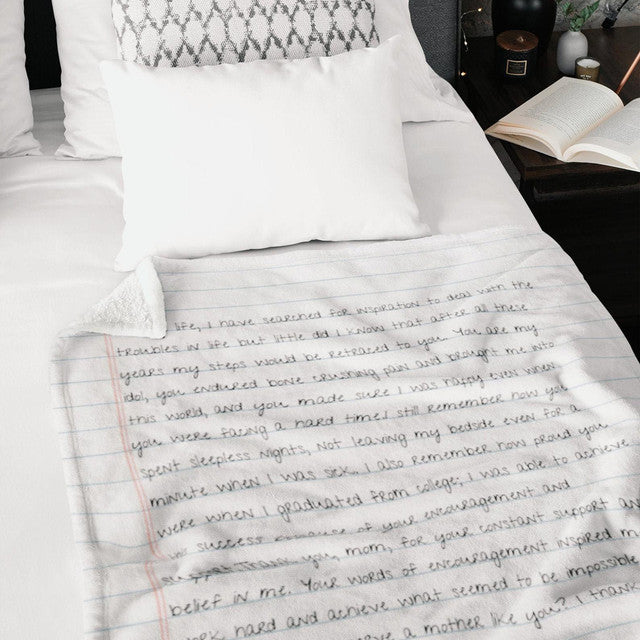 life, I have searched for inspiration to deal with the
trouble in life but little did I know that after all these
years my steps would be retraced to you. You are my
idol, you endured bone crushing pain and brought me into
this world, and you made sure I was happy even when
you were facing a hard time! I still remember how you
spent sleepless nights, not leaving my bedside even for a
minute when I was sick. I also remember how proud you
were when I graduated from college; I was able to achieve
success of your encouragement and
you, mom, for your constant support and
belief in me. Your words of encouragement inspired m
work hard and achieve what seemed to be impossible
a mother like you? I thank